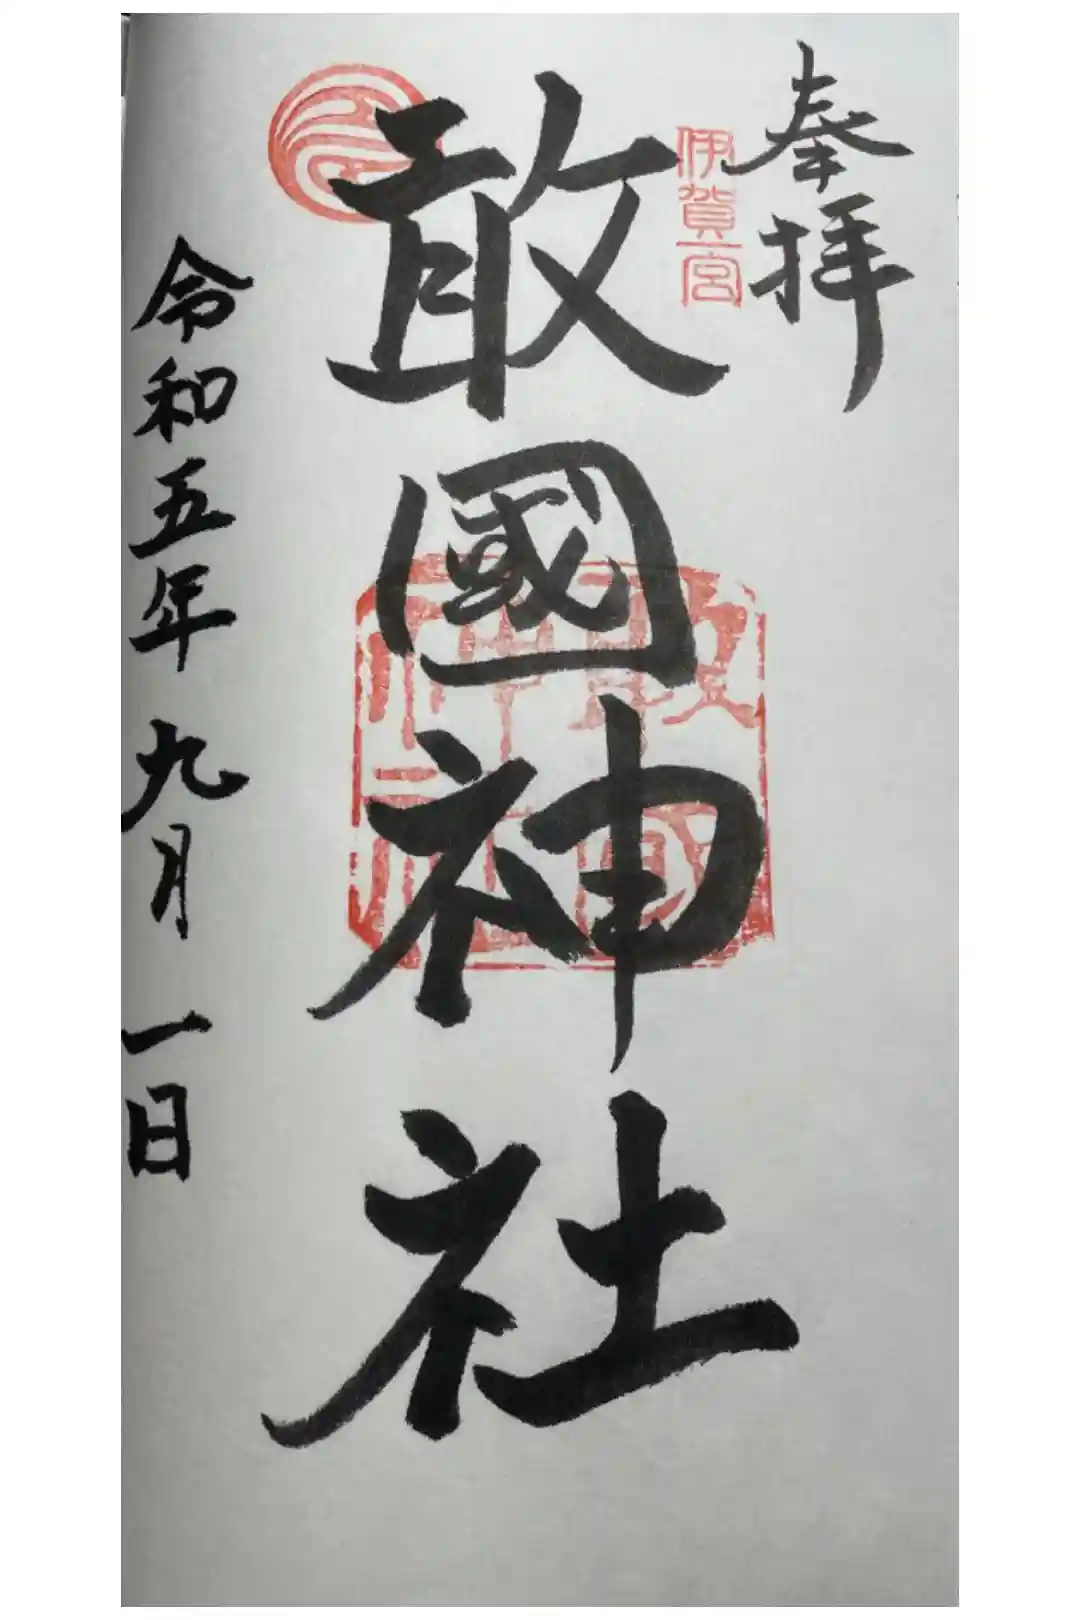 奉拝
伊賀一宮
敢國神社
敢國神社
令和五年九月一日